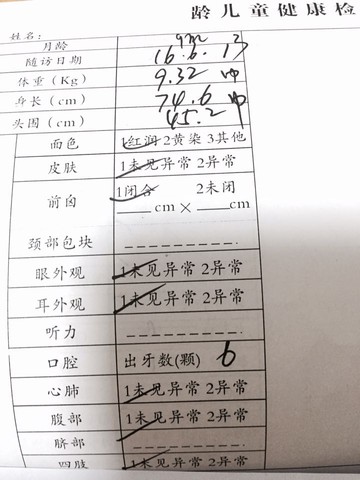 龄儿童健康检
姓名:
月龄 9m
随访日期 16.6.13
体重(Kg) 9.32 中
身长(cm) 74.6 中
头围(cm) 45.2
面色 1红润 2黄染 3其他
皮肤 1未见异常 2异常
前囟 1闭合 2未闭
____cm × ____cm
颈部包块
眼外观 1未见异常 2异常
耳外观 1未见异常 2异常
听力
口腔 出牙数(颗) 6
心肺 1未见异常 2异常
腹部 1未见异常 2异常
脐部
四肢 1未见异常 2异常